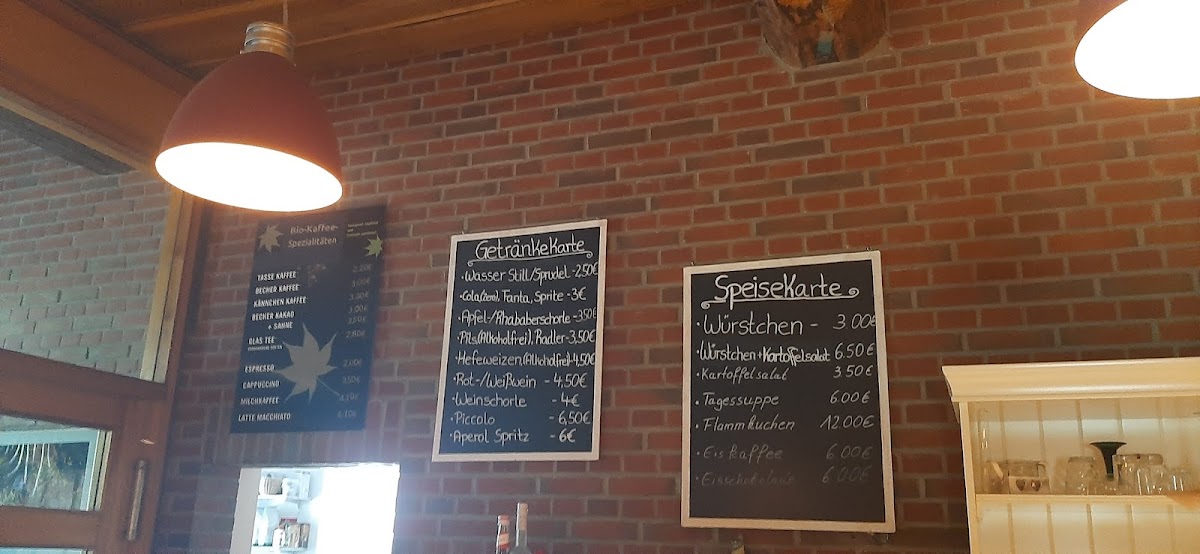 Bio-Kaffee-
Spezialitäten
TASSE KAFFEE 2.20€
BECHER KAFFEE 3.00€
KÄNNCHEN KAFFEE
BECHER KAKAO 3.00€
+ SAHNE
GLAS TEE 2.80€
ESPRESSO 2.00€
CAPPUCCINO
MILCHKAFFEE
LATTE MACCHIATO
Getränkekarte
·Wasser Still/Sprudel -2,50€
·Cola(zero), Fanta, Sprite -3€
·Apfel-/Rhababerschorle -3,50€
·Pils(Alkoholfrei), Radler -3,50€
·Hefeweizen(Alkoholfrei) -4,50€
·Rot-/Weißwein - 4,50€
·Weinschorle - 4€
·Piccolo - 6,50€
·Aperol Spritz - 6€
Speisekarte
·Würstchen - 3.00€
·Würstchen+Kartoffelsalat 6.50€
·Kartoffelsalat 3.50€
·Tagessuppe 6.00€
·Flammkuchen 12.00€
·Eiskaffee 6.00€
·Eisschokolade 6.00€